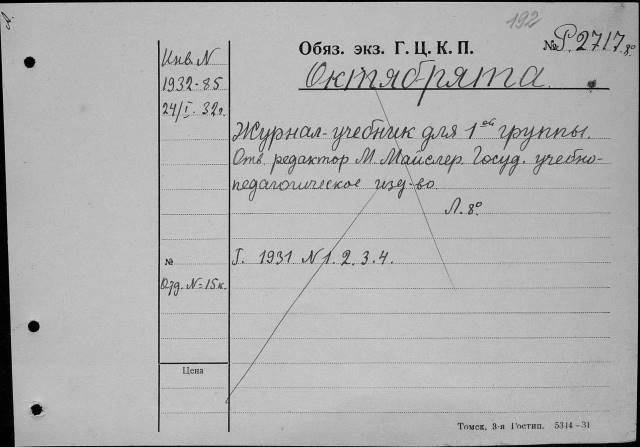 192
Обяз. экз. Г. Ц. К. П.
№ Р. 2717. 8°
Октябрята.
Инв. N
1932-85
24/I. 32г.
Журнал-учебник для 1ой группы.
Отв. редактор М. Майслер. Госуд. учебно-
педагогическое изд-во.
Л. 8°
№
Отд. N=15к.
Г. 1931 N 1. 2. 3. 4.
Цена
Томск, 3-я Гостип. 5314-31